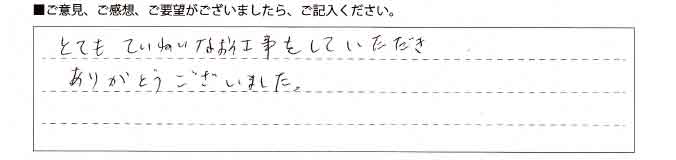 ■ご意見、ご感想、ご要望がございましたら、ご記入ください。
とても ていねいなお工事をしていただき
ありがとうございました。